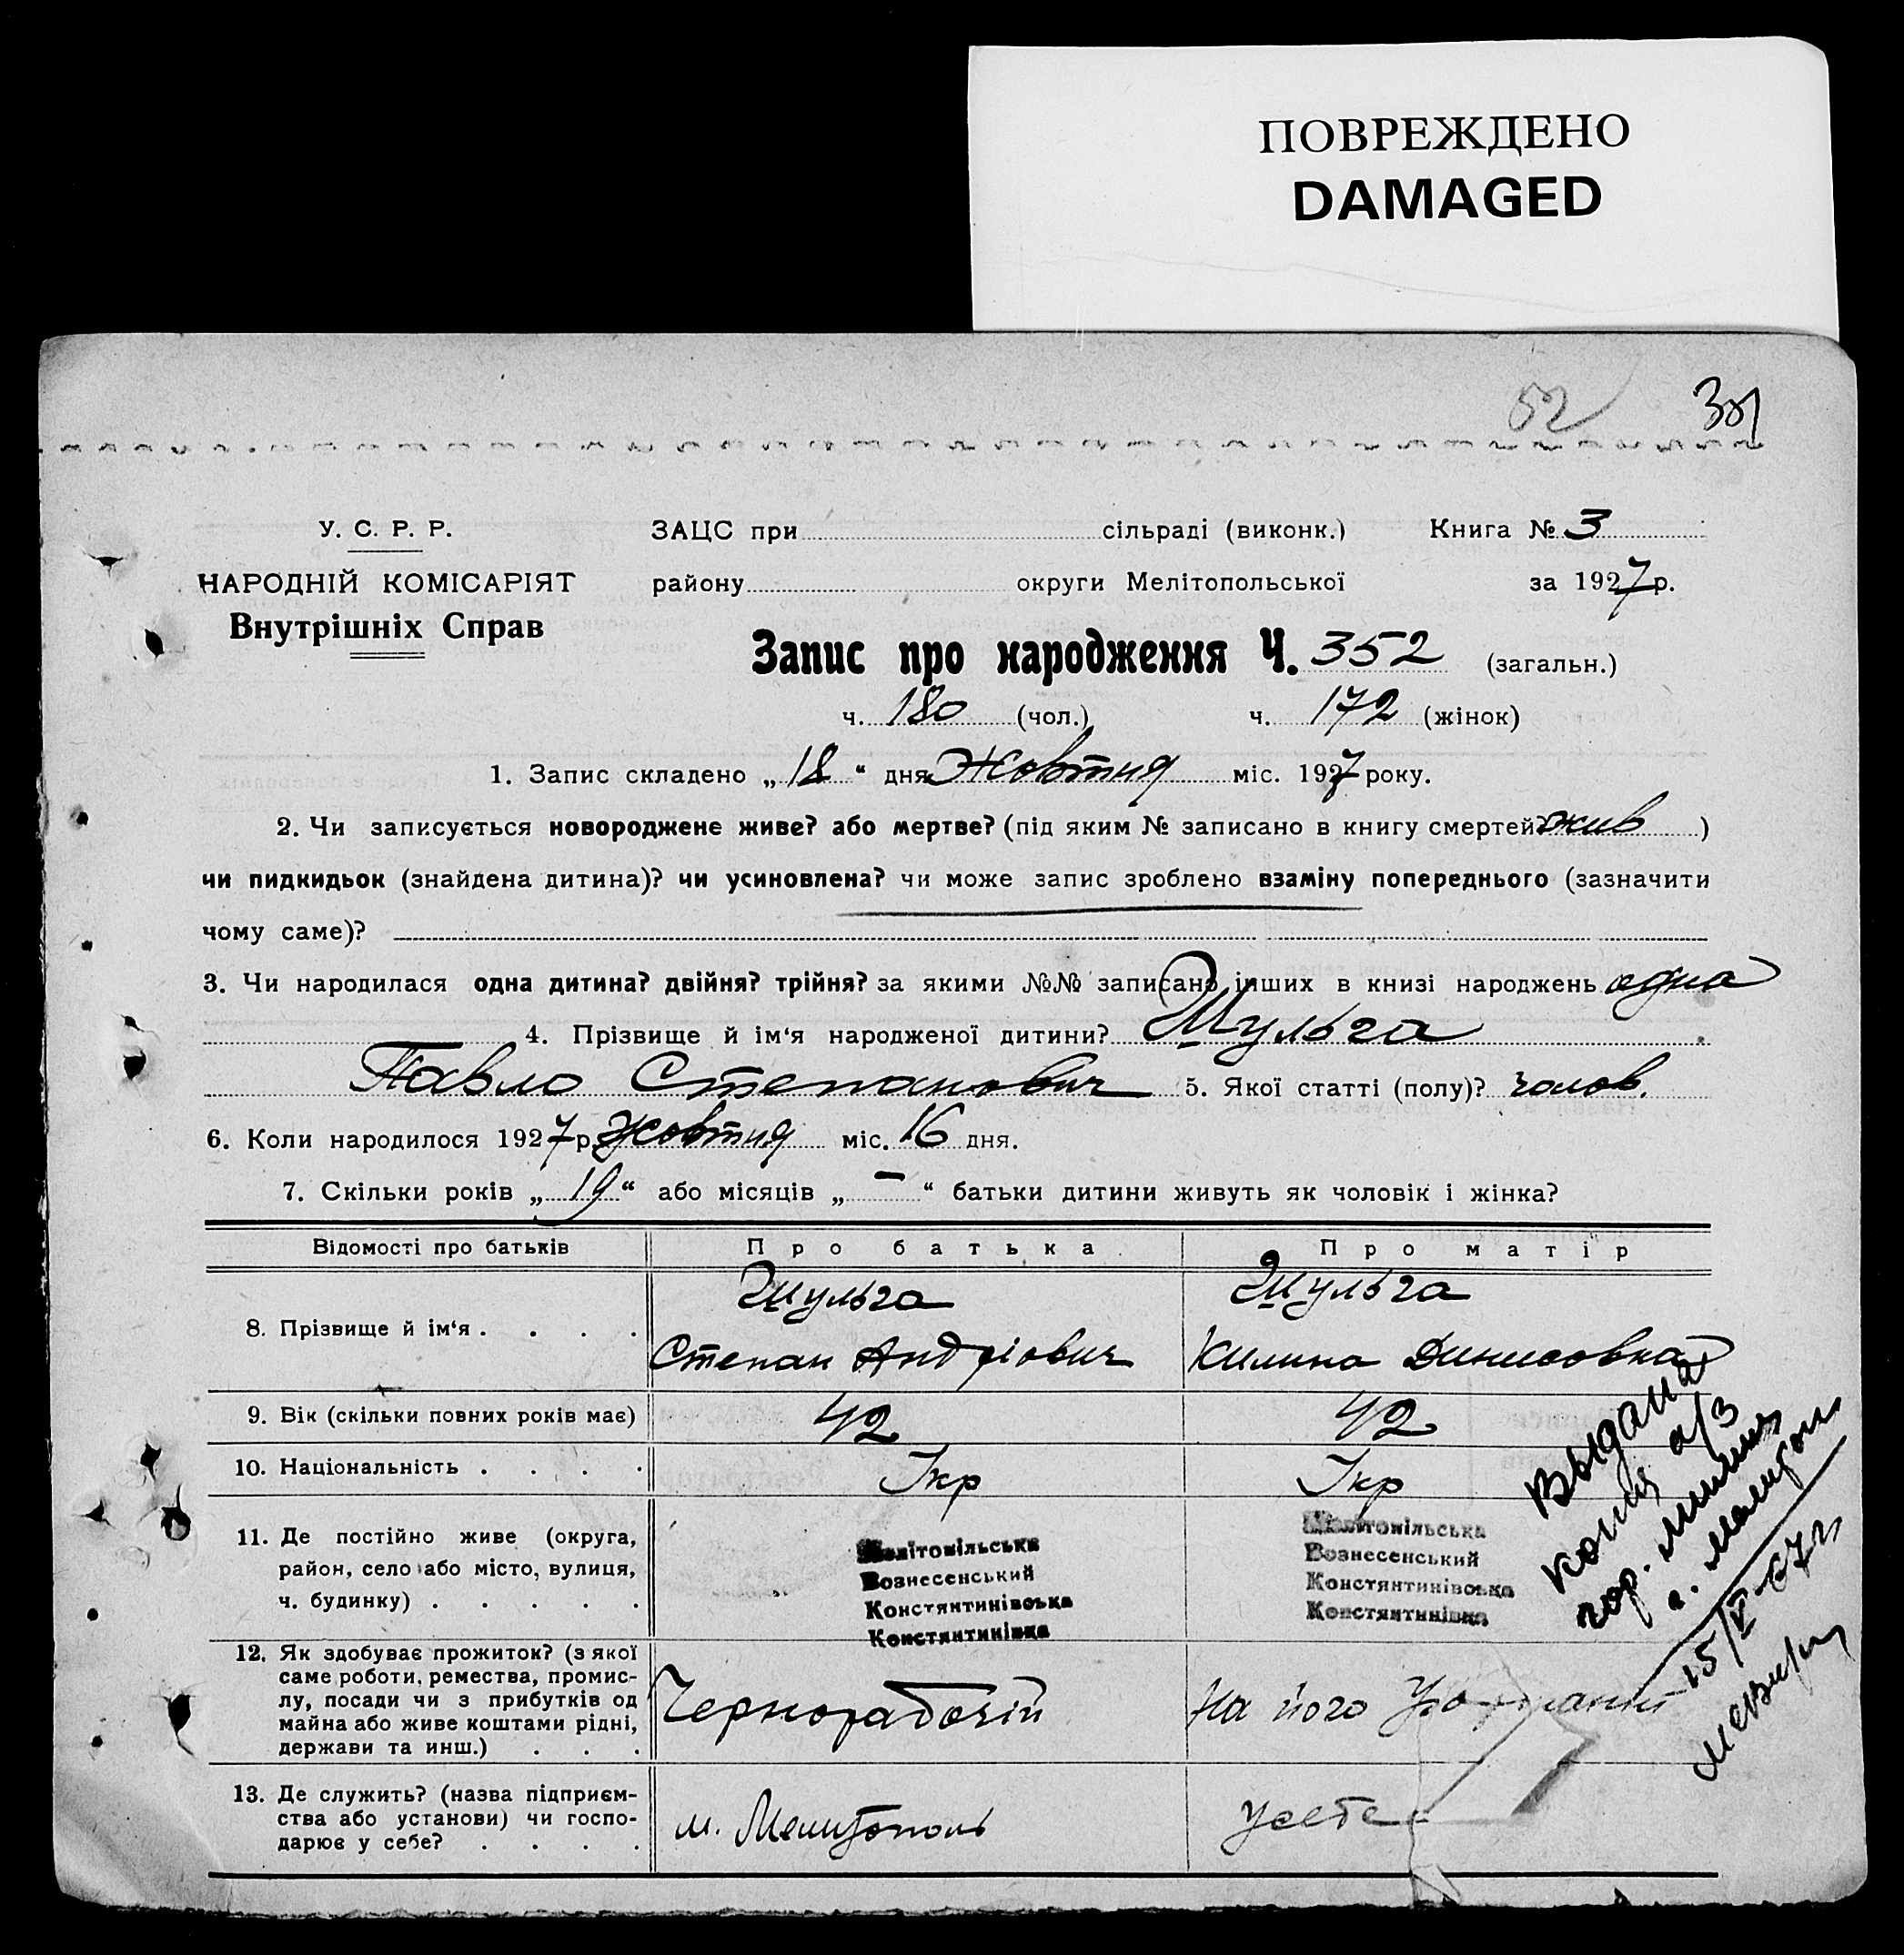 ПОВРЕЖДЕНО
DAMAGED
52
У. С. Р. Р.
ЗАЦС при сільраді (виконк.) Книга № 3
НАРОДНІЙ КОМІСАРІЯТ
району округи Мелітопольської за 1927 р.
Внутрішніх Справ
Запис про народження Ч. 352 (загальн.)
ч. 180 (чол.) ч. 172 (жінок)
1. Запис складено „ 18 “ дня Жовтня міс. 1927 року.
2. Чи записується новороджене живе? або мертве? (під яким № записано в книгу смертей? жив )
чи пидкидьок (знайдена дитина)? чи усиновлена? чи може запис зроблено взаміну попереднього (зазначити
чому саме)?
3. Чи народилася одна дитина? двійня? трійня? за якими №№ записано інших в книзі народжень одна
4. Прізвище й ім‘я народженої дитини? Шульга
Павло Степанович 5. Якої статті (полу)? чолов.
6. Коли народилося 1927 р. Жовтня міс. 16 дня.
7. Скільки років „ 19 “ або місяців „ — “ батьки дитини живуть як чоловік і жінка?
Відомості про батьків Про батька Про матір
8. Прізвище й ім‘я . . . . Шульга Шульга
Степан Андріович Килина Динисовна
9. Вік (скільки повних років має) 42 42
10. Національність . . . . Укр Укр
11. Де постійно живе (округа,
район, село або місто, вулиця,
ч. будинку) . . . . .
Мелітопільська
Вознесенський
Констянтинівська
Констянтинівка
Мелітопільська
Вознесенський
Констянтинівська
Констянтинівка
12. Як здобуває прожиток? (з якої
саме роботи, ремества, промис-
лу, посади чи з прибутків од
майна або живе коштами рідні,
держави та инш.) . . .
Чернорабочій
На його
13. Де служить? (назва підприєм-
ства або установи) чи госпо-
дарює у себе? . . . .
м. Мелитополь
у себе
Выдана
копия а/з
гор.
г.
15/V-67 г.